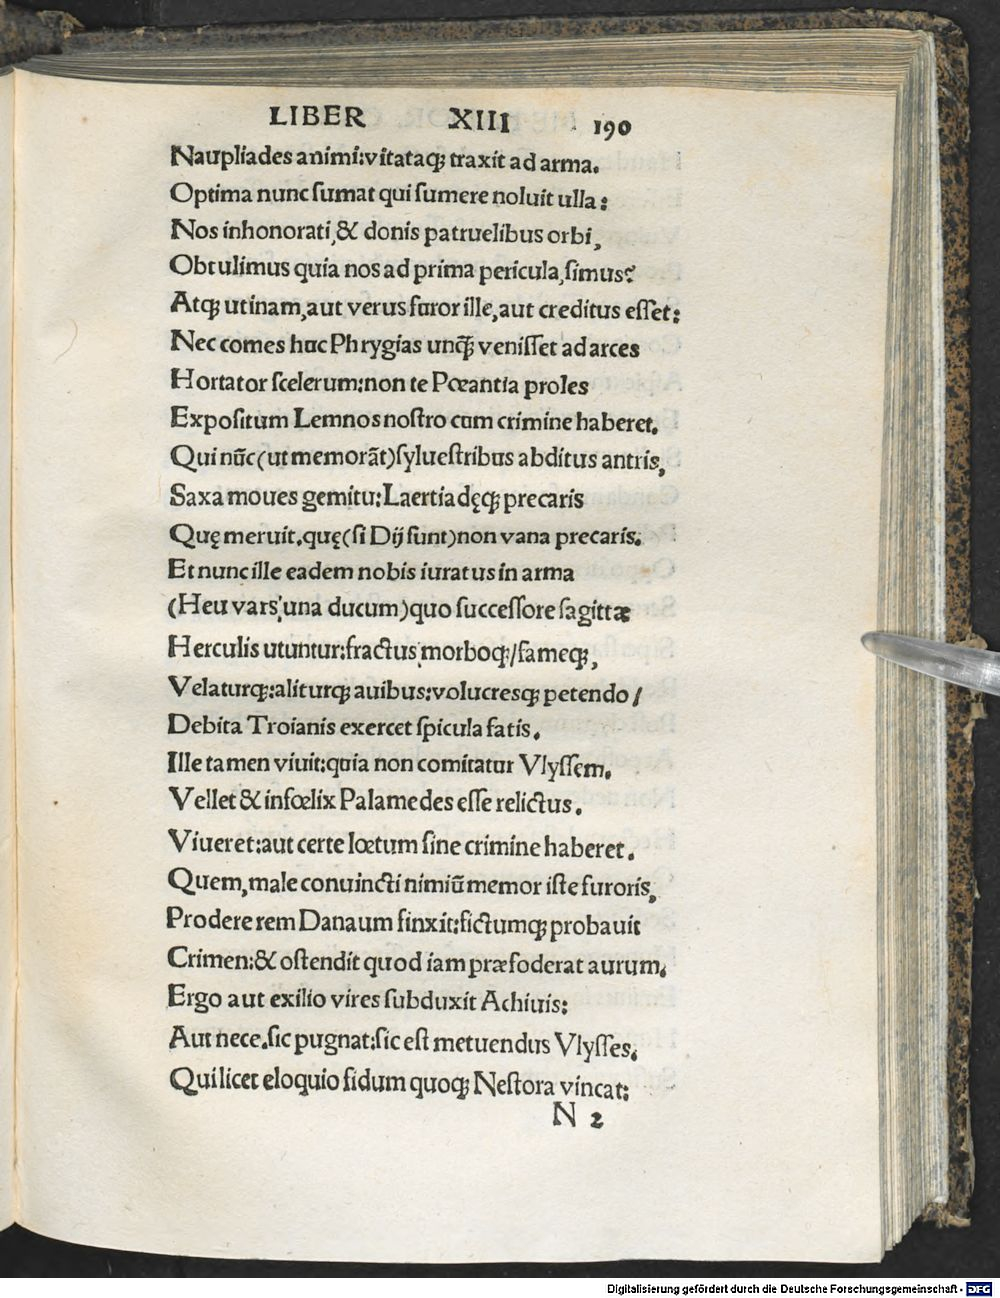 LIBER XIII 190
Naupliades animi:vitataqꝫ traxit ad arma.
Optima nunc ſumat qui ſumere noluit ulla:
Nos inhonorati,& donis patruelibus orbi,
Obtulimus quia nos ad prima pericula,ſimus?
Atqꝫ utinam,aut verus furor ille,aut creditus eſſet:
Nec comes huc Phrygias unq̃ veniſſet ad arces
Hortator ſcelerum:non te Pœantia proles
Expoſitum Lemnos noſtro cum crimine haberet.
Qui nũc(ut memorãt)ſylueſtribus abditus antris,
Saxa moues gemitu:Laertiadęqꝫ precaris
Quę meruit.quę(ſi Dij ſunt)non vana precaris.
Et nunc ille eadem nobis iuratus in arma
(Heu vars'una ducum)quo ſucceſſore ſagittæ
Herculis utuntur:fractus morboqꝫ/fameqꝫ,
Velaturqꝫ:aliturqꝫ auibus:volucresqꝫ petendo/
Debita Troianis exercet ſpicula fatis.
Ille tamen viuit:quia non comitatur Vlyſſem.
Vellet & infœlix Palamedes eſſe relictus.
Viueret:aut certe lœtum ſine crimine haberet.
Quem,male conuincti nimiũ memor iſte furoris,
Prodere rem Danaum finxit:fictumqꝫ probauit
Crimen:& oſtendit quod iam præfoderat aurum.
Ergo aut exilio vires ſubduxit Achiuis:
Aut nece.ſic pugnat:ſic eſt metuendus Vlyſſes.
Qui licet eloquio fidum quoqꝫ Neſtora vincat:
N 2
Digitalisierung gefördert durch die Deutsche Forschungsgemeinschaft - DFG